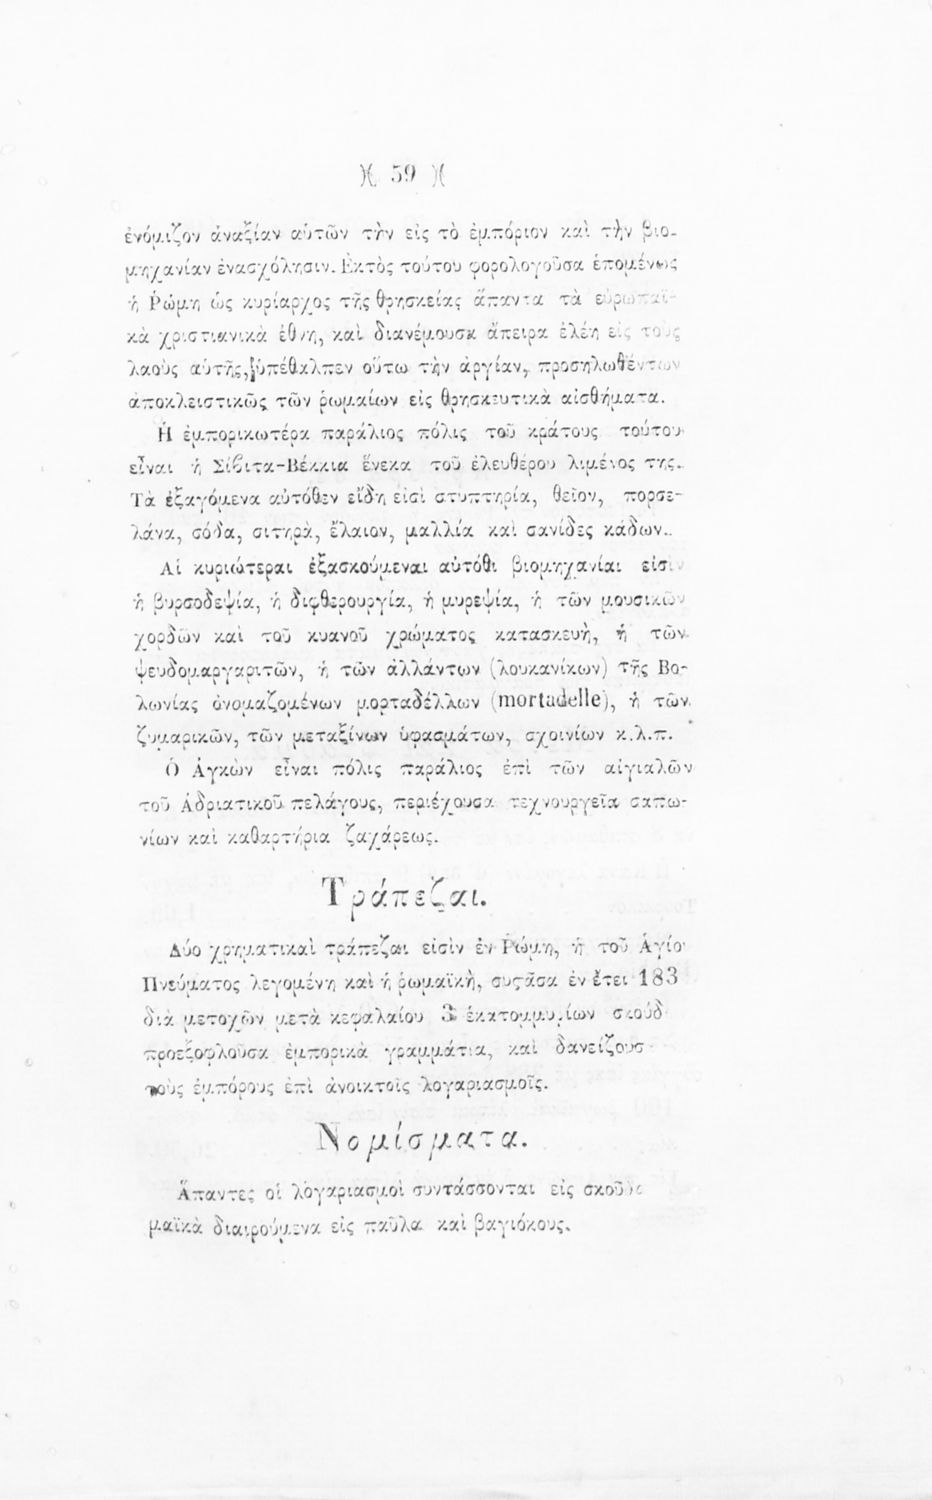 )( 59 )(
ἐνόμιζον ἀναξίαν αὑτῶν τὴν εἰς τὸ ἐμπόριον καὶ τὴν βιο-
μηχανίαν ἐνασχόλησιν. Ἐκτὸς τούτου φορολογοῦσα ἑπομένως
ἡ Ῥώμη ὡς κυρίαρχος τῆς θρησκείας ἅπαντα τὰ εὐρωπαϊ-
κὰ χριστιανικὰ ἔθνη, καὶ διανέμουσα ἄπειρα ἐλέη εἰς τοὺς
λαοὺς αὑτῆς, ὑπέθαλπεν οὕτω τὴν ἀργίαν, προσηλωθέντων
ἀποκλειστικῶς τῶν ῥωμαίων εἰς θρησκευτικὰ αἰσθήματα.
Ἡ ἐμπορικωτέρα παράλιος πόλις τοῦ κράτους τούτου
εἶναι ἡ Σίβιτα-Βέκκια ἕνεκα τοῦ ἐλευθέρου λιμένος της.
Τὰ ἐξαγόμενα αὐτόθεν εἴδη εἰσὶ στυπτηρία, θεῖον, πορσε-
λάνα, σόδα, σιτηρὰ, ἔλαιον, μαλλία καὶ σανίδες κάδων.
Αἱ κυριώτεραι ἐξασκούμεναι αὐτόθι βιομηχανίαι εἰσὶν
ἡ βυρσοδεψία, ἡ διφθερουργία, ἡ μυρεψία, ἡ τῶν μουσικῶν
χορδῶν καὶ τοῦ κυανοῦ χρώματος κατασκευὴ, ἡ τῶν
ψευδομαργαριτῶν, ἡ τῶν ἀλλάντων (λουκανίκων) τῆς Βο-
λωνίας ὀνομαζομένων μορταδέλλων (mortadelle), ἡ τῶν
ζυμαρικῶν, τῶν μεταξίνων ὑφασμάτων, σχοινίων κ.λ.π.
Ὁ Ἀγκὼν εἶναι πόλις παράλιος ἐπὶ τῶν αἰγιαλῶν
τοῦ Ἀδριατικοῦ πελάγους, περιέχουσα τεχνουργεῖα σαπω-
νίων καὶ καθαρτήρια ζαχάρεως.
Τράπεζαι.
Δύο χρηματικαὶ τράπεζαι εἰσὶν ἐν Ῥώμη, ἡ τοῦ Ἁγίο
Πνεύματος λεγομένη καὶ ἡ ῥωμαϊκὴ, συςᾶσα ἐν ἔτει 183
διὰ μετοχῶν μετὰ κεφαλαίου 3 ἑκατομμυρίων σκούδ
προεξοφλοῦσα ἐμπορικὰ γραμμάτια, καὶ δανείζουσ
τοὺς ἐμπόρους ἐπὶ ἀνοικτοῖς λογαριασμοῖς.
Νομίσματα.
Ἅπαντες οἱ λογαριασμοὶ συντάσσονται εἰς σκοῦδ
μαϊκὰ διαιρούμενα εἰς παῦλα καὶ βαγιόκους.